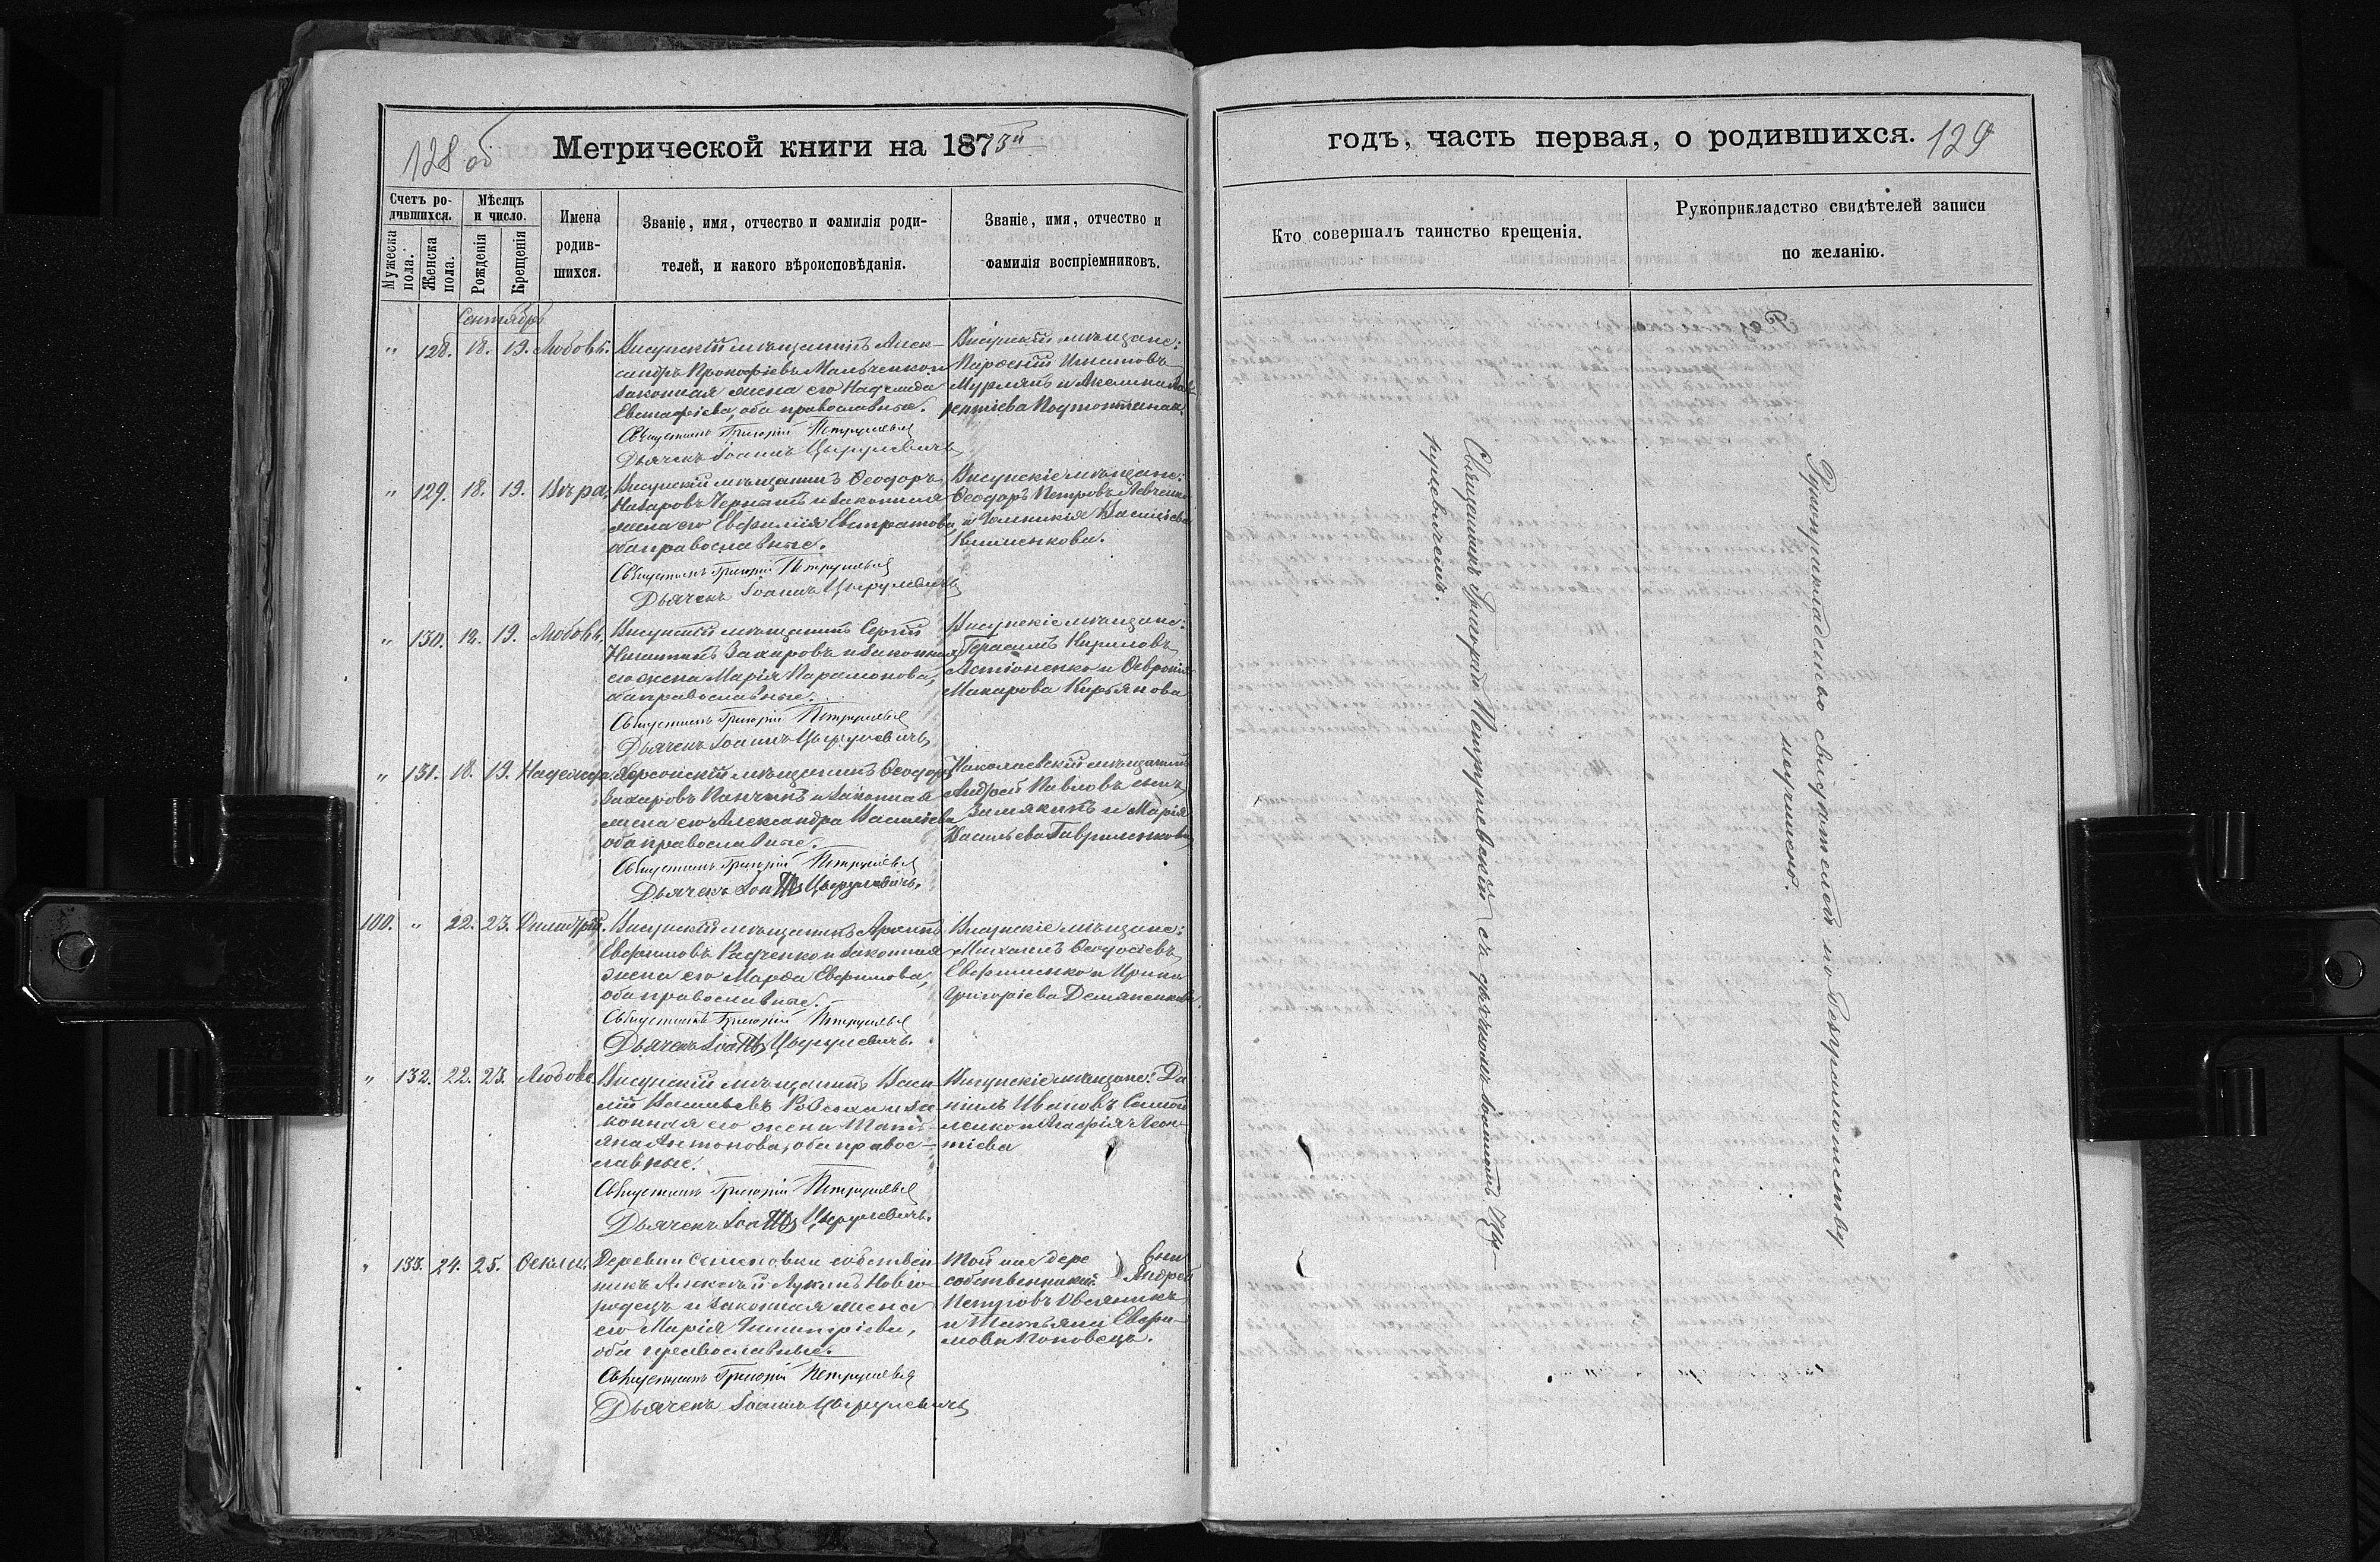 128 об
Метрической книги на 1873й
Счетъ ро-
дившихся.
Мужеска пола.
Женска пола.
Мѣсяцъ
и число.
Рожденія
Крещенія
Имена
родив-
шихся.
Званіе, имя, отчество и фамилія роди-
телей, и какого вѣроисповѣданія.
Званіе, имя, отчество и
фамилія воспріемниковъ.
Сентябрь
" 128. 18. 19. Любовь.
Висунскій мѣщанинъ Алек-
сандръ Прокофіевъ Мальченко и
законная жена его Надежда
Евстафіева, оба православные.
Священникъ Григорій
Дьячекъ Іоаннъ Цырулевичъ
Висунскій мѣщане:
Игнатовъ
и Акелина Лав-
рентіева
" 129. 18. 19. Вѣра,
Висунскій мѣщанинъ Ѳеодоръ
Назаровъ и законная
жена его Евфимія Евстратова
оба православные.
Священникъ Григорій
Дьячекъ Іоаннъ Цырулевичъ
Висунскіе мѣщане:
Ѳеодоръ Петровъ Левченко
и Васильева
Клименкова.
" 130. 19. Любовь.
Висунскій мѣщанинъ Сергій
Захаровъ и законная
его жена Марія Парамонова,
оба православные.
Священникъ Григорій
Дьячекъ Іоаннъ Цырулевичъ
Висунскіе мѣщане:
Герасимъ Кириловъ
и Ѳевронія
Макарова Кирьянова
" 131. 18. 19. Надежда.
Херсонскій мѣщанинъ Ѳеодоръ
Захаровъ и законная
жена его Александра Васильева
оба православные.
Священникъ Григорій
Дьячекъ Цырулевичъ.
Николаевскій мѣщанинъ
Андрей Павловъ сынъ
и Марія
Васильева Гавриленкова
100. " 22. 23. Димитрій.
Висунскій мѣщанинъ
Евфимовъ Радченко и законная
жена его Марфа Евфимова,
оба православные.
Священникъ Григорій
Дьячекъ Цырулевичъ.
Висунскіе мѣщане:
Михаилъ Ѳеодосіевъ
Евфименко и Ирина
Григоріева Демяненкова.
" 132. 22. 23. Любовь.
Висунскій мѣщанинъ Васи-
лій Васильевъ и за-
конная его жена Тать-
яна Антонова, оба право-
славные.
Священникъ Григорій
Дьячекъ Цырулевичъ.
Висунскіе мѣщане: Да-
ніилъ Ивановъ
и Агафія Леон-
тіева
" 133. 24. 25. Ѳекла.
Деревни Семеновки собствен-
никъ Алексѣй Новго-
родецъ и законная жена
его Марія Димитріева,
оба православные.
Священникъ Григорій
Дьячекъ Іоаннъ Цырулевичъ
Той же дере
собственники Андрей
Петровъ Овсяникъ
и Татьяна Евфи-
мова Поповецъ.
годъ, часть первая, о родившихся. 129
Кто совершалъ таинство крещенія.
Рукоприкладство свидѣтелей записи
по желанію.
Священникъ Григорій Петрушевскій съ дьячкомъ Іоанномъ Цы-
рулевичемъ.
Рукоприкладство свидѣтелей по безграмотству
неучинено.